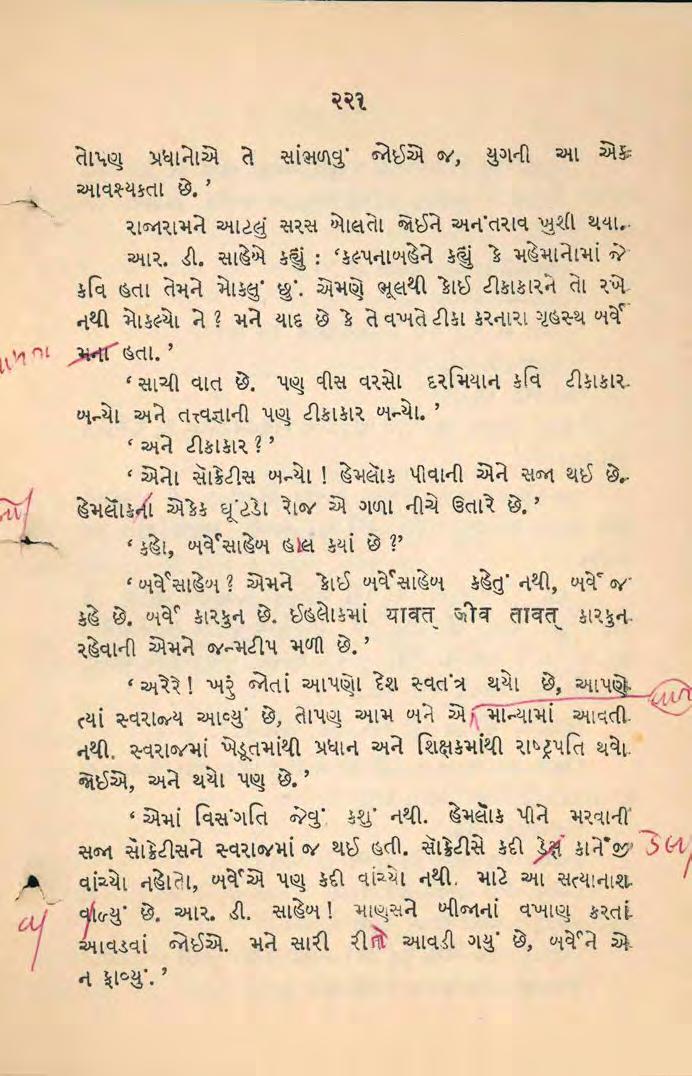 ૨૨૧
તોપણ પ્રધાનોએ તે સાંભળવું જોઈએ જ, યુગની આ એક
આવશ્યકતા છે.’
રાજારામને આટલું સરસ બોલતો જોઈને અનંતરાવ ખુશી થયા.
આર. ડી. સાહેબે કહ્યું : ‘કલ્પનાબહેને કહ્યું કે મહેમાનોમાં જે
કવિ હતા તેમને મોકલું છું. એમણે ભૂલથી કોઈ ટીકાકારને તો રખે
નથી મોકલ્યો ને ? મને યાદ છે કે તે વખતે ટીકા કરનારા ગૃહસ્થ બર્વે
મના હતા.’
‘સાચી વાત છે. પણ વીસ વરસો દરમિયાન કવિ ટીકાકાર
બન્યો અને તત્ત્વજ્ઞાની પણ ટીકાકાર બન્યો.’
‘અને ટીકાકાર ?’
‘એનો સૉક્રેટીસ બન્યો ! હેમલૉક પીવાની એને સજા થઈ છે.
હેમલૉકના એકેક ઘૂંટડો રોજ એ ગળા નીચે ઉતારે છે.’
નો
‘કહો, બર્વેસાહેબ હાલ કયાં છે ?’
‘બર્વેસાહેબ ? એમને કોઈ બર્વેસાહેબ કહેતું નથી, બર્વે જ
કહે છે. બર્વે કારકુન છે. ઈહલોકમાં यावत् जीव तावत् કારકુન
રહેવાની એમને જન્મટીપ મળી છે.’
‘અરેરે ! ખરું જોતાં આપણો દેશ સ્વતંત્ર થયો છે, આપણે
ત્યાં સ્વરાજ્ય આવ્યું છે, તોપણ આમ બને એ માન્યામાં આવતી
નથી. સ્વરાજમાં ખેડૂતમાંથી પ્રધાન અને શિક્ષકમાંથી રાષ્ટ્રપતિ થવો
જોઈએ, અને થયો પણ છે.’
‘એમાં વિસંગતિ જેવું કશું નથી. હેમલૉક પીને મરવાની
સજા સૉક્રેટીસને સ્વરાજમાં જ થઈ હતી. સૉક્રેટીસે કદી ડેસ કાર્નેજી
ડેલ
વાંચ્યો નહોતો, બર્વેએ પણ કદી વાંચ્યો નથી. માટે આ સત્યાનાશ
વાળ્યું છે. આર. ડી. સાહેબ ! માણસને બીજાનાં વખાણ કરતાં
આવડવાં જોઈએ. મને સારી રીતે આવડી ગયું છે, બર્વેને એ
ન ફાવ્યું.’